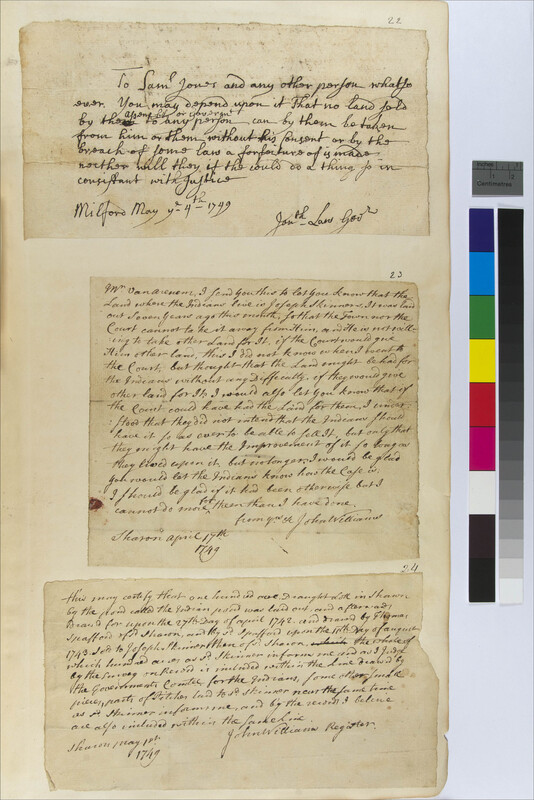 22
To Sam.ll Jones and any other person whatso
ever. You may depend upon it that no land sold
assembly or govern.mt
by them to any person can by them be taken
from him or them without his Consent or by the
breach of some law a forfeiture of is made
neither will they if the could do a thing so in
consistant with Justice
Milford May y.e 4.th 1749
Jon.th Law Gov.r
23
M.r Vanarenem, I send you this to let you know that the
Land where the Indians live is Joseph Skinners, it was laid
out Seven Years ago this month, so that the Town nor the
Court cannot take it away from Him, and He is not will-
ing to take other Land for It, if the Court would give
Him other land, this I did not know when I went to
the Court, but thought that the Land might be had for
the Indians without any Difficulty, if they would give
other land for It; I would also let you know that if
the Court could have had the Land for them, I under-
: stood that they did not intend that the Indians Should
have it so as ever to be able to sell It, but only that
they might have the Improvement of it so long as
they lived upon it, but no longer; I would be glad
you would let the Indians know how the Case is
I should be glad if it had been otherwise but I
cannot do more then than I have done.
from y.rs &c John Williams
Sharon april 17.th
1749
24
this may certify that one hundred acre Draught Lot in Sharon
by the pond called the Indian pond was laid out and afterwards
Drawd for upon the 27th Day of april 1742. and drawd by
Spafford of S.d Sharon, and by S.d Spafford upon the Day of august
1743 Sold to Joseph Skinner then of S.d Sharon, the whole of
which hundred acres as S.d Skinner informs me and as I Judge
by the Survey on Record is included within the Line drawd by
the Governments Comtee for the Indians, some other small
pieces, parts of pitches laid to S.d Skinner near the same time
as S.d Skinner informs me, and by the record I believe
are also included within the same Line.
Sharon may 1st
1749
John Williams Register.
inches
Centimetres